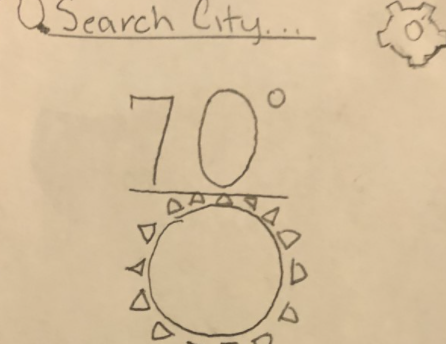 Search City...
70°